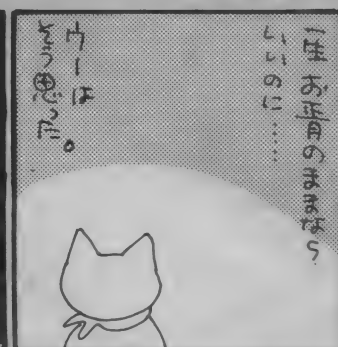 一生 お のままなら
いいのに……
ウーは
そう思った。